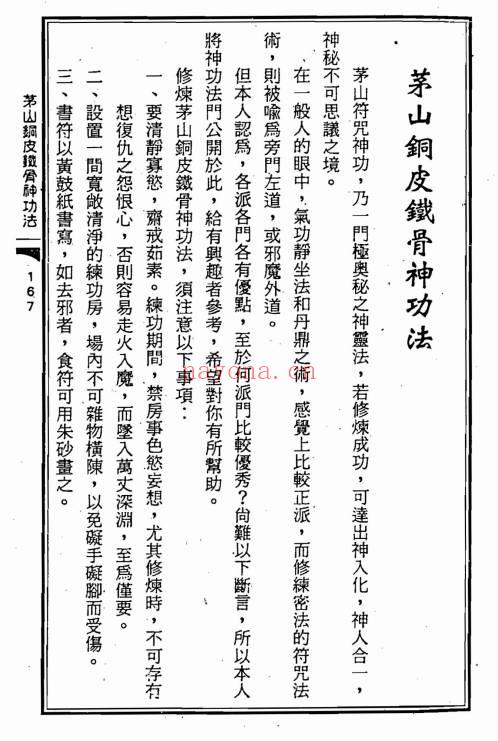 茅山銅皮鐵骨神功法
茅山符咒神功，乃一門極奧秘之神靈法，若修煉成功，可達出神入化，神人合一，
神秘不可思議之境。
在一般人的眼中，氣功靜坐法和丹鼎之術，感覺上比較正派，而修練密法的符咒法
術，則被喩爲旁門左道，或邪魔外道。
但本人認爲，各派各門各有優點，至於何派門比較優秀？尙難以下斷言，所以本人
將神功法門公開於此，給有興趣者參考，希望對你有所幫助。
修煉茅山銅皮鐵骨神功法，須注意以下事項：
一、要清靜寡慾，齋戒茹素。練功期間，禁房事色慾妄想，尤其修煉時，不可存有
想復仇之怨恨心，否則容易走火入魔，而墜入萬丈深淵，至爲僅要。
二、設置一間寬敞清淨的練功房，場內不可雜物橫陳，以免礙手礙腳而受傷。
三、書符以黃鼓紙書寫，如去邪者，食符可用朱砂畫之。
茅山銅皮鐵骨神功法
167
nayona.cn